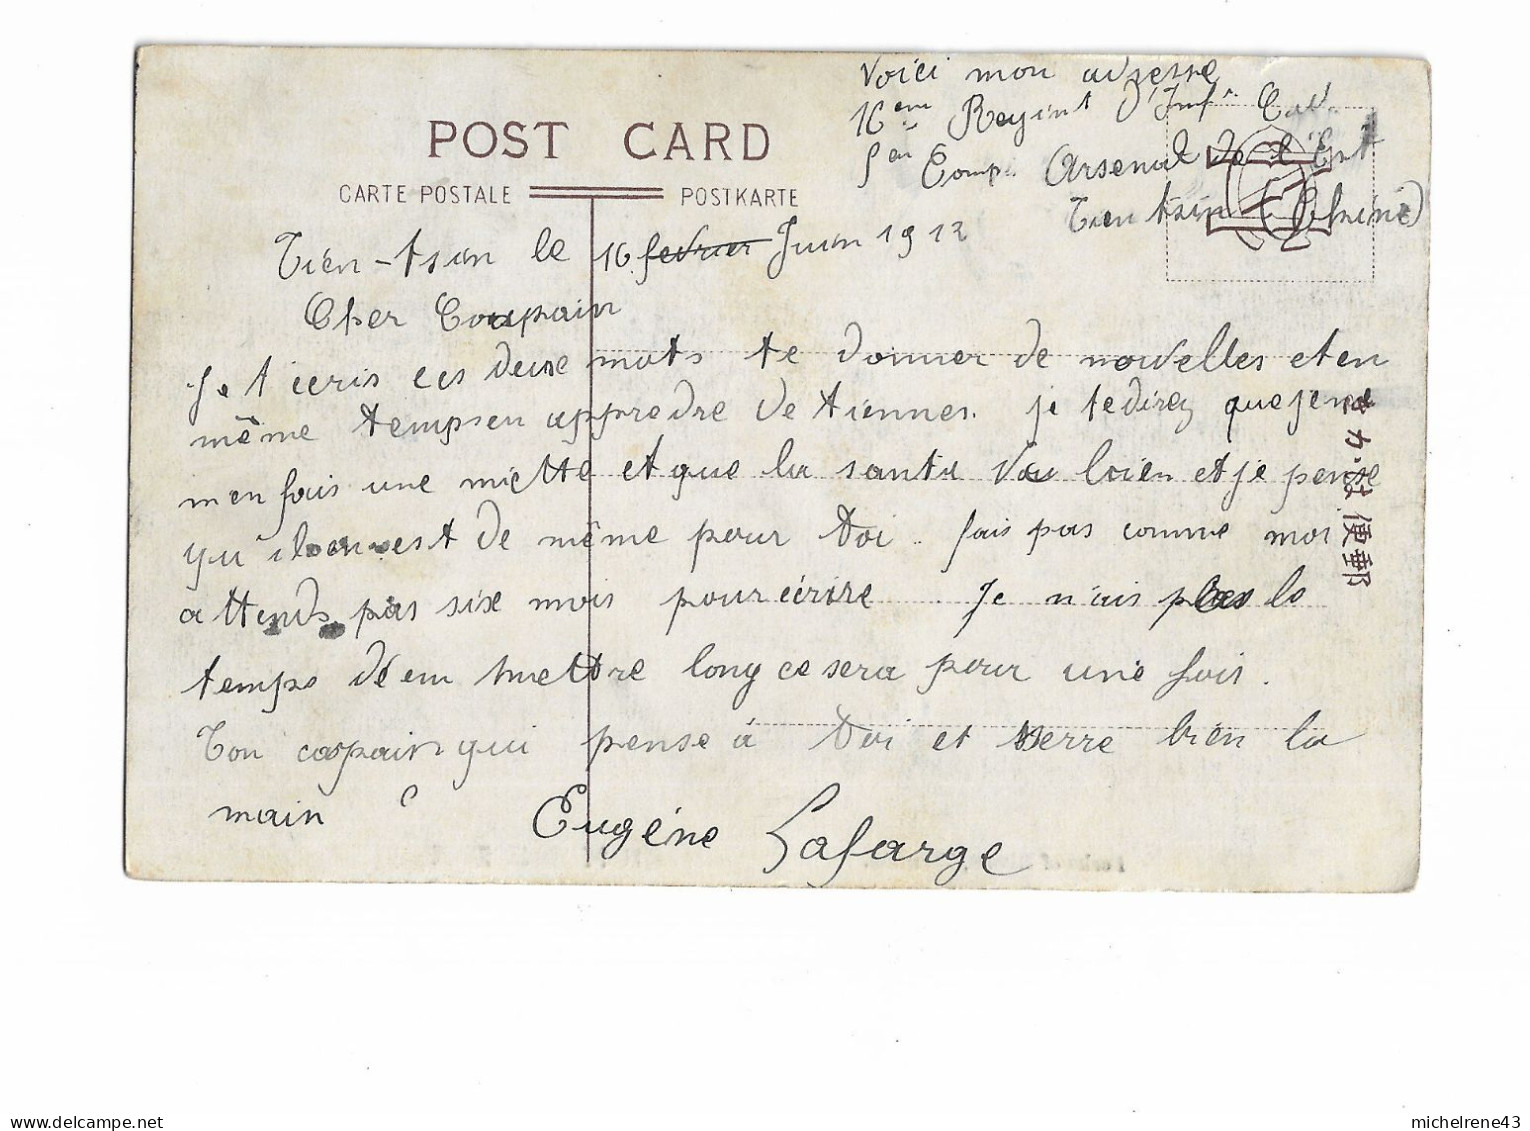 Voici mon adresse
16em Regimt d'Infie Col.
5em Comp. Arsenal de l'Est
Tien tsin (Chine)
POST CARD
CARTE POSTALE POSTKARTE
Tien-tsin le 16 fevrier Juin 1912
Cher Coupain
Je t'ecris ces deux mots te donner de nouvelles et en
même temps en appredre de tiennes. je te direz que je ne
m'en fais une miette et que la santé va bien et je pense
qu'il en est de même pour toi. fais pas comme moi
attends pas six mois pour écrire. Je n'ais pas le
temps d'em mettre long ce sera pour une fois.
Ton copain qui pense à toi et serre bien la
main
Eugéne Lafarge
郵便はか
michelrene43